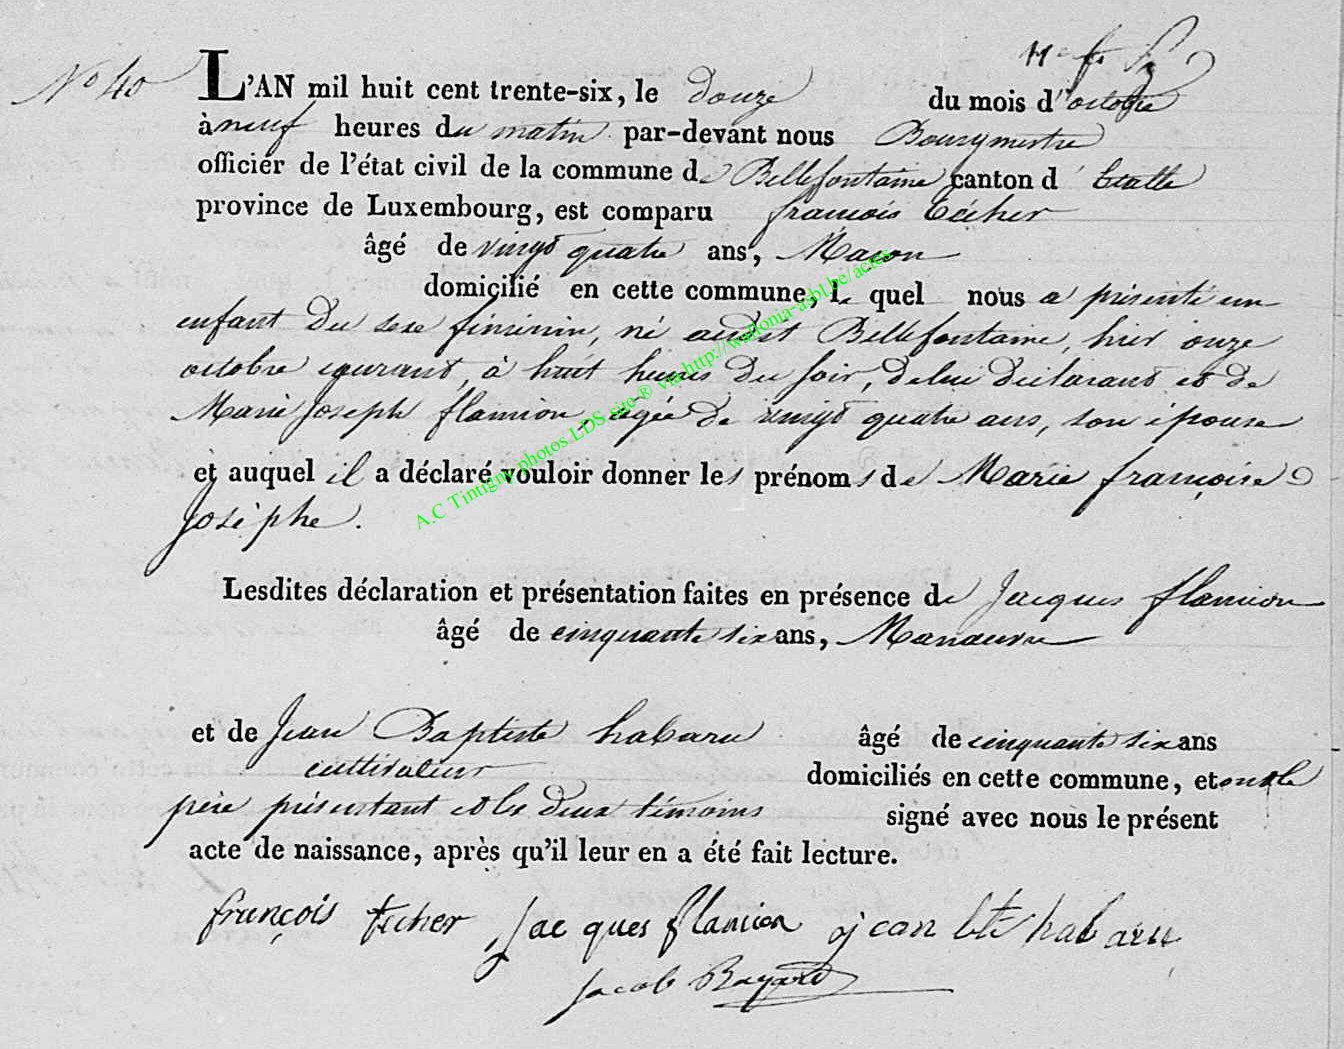 N° 40
L'AN mil huit cent trente-six, le douze du mois d'octobre
à neuf heures du matin par-devant nous Bourgmestre
officier de l'état civil de la commune de Bellefontaine canton d'Etalle
province de Luxembourg, est comparu françois técher
âgé de vingt quatre ans, Maçon
domicilié en cette commune, le quel nous a présenté un
enfant du sexe féminin, né audit Bellefontaine, hier onze
octobre courant, à huit heures du soir, de lui déclarant et de
Marie Joseph flamion, agée de vingt quatre ans, son épouse
et auquel il a déclaré vouloir donner les prénoms de Marie françoise
Josèphe.
Lesdites déclaration et présentation faites en présence de Jacques flamion
âgé de cinquante six ans, Manœuvre
et de Jean Baptiste habaru âgé de cinquante six ans
cultivateur domiciliés en cette commune, et ont le
père présentant et les deux témoins signé avec nous le présent
acte de naissance, après qu'il leur en a été fait lecture.
françois techer Jacques flamion jean bte habaru
Jacob Bayard
A.C Tintigny photos LDS site ® via http://wallonia-asbl.be/actes